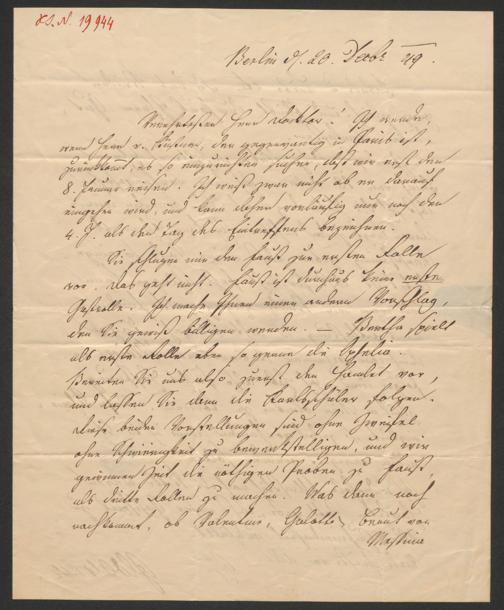 J. N. 19 944
Berlin d. 20. Decbr 49.
Verehrtester Herr Doktor! Ich werde,
wenn Herr v. Küstner, der gegenwärtig in Paris ist,
zurückkommt, es so einzurichten suchen, daß wir erst den
8. Januar reisen. Ich weiß zwar nicht ob er darauf
eingehen wird, und kann daher vorläufig nur noch den
4. J. als den Tag des Eintreffens bezeichnen.
Sie schlugen mir den Faust zur ersten Rolle
vor. Das geht nicht. Faust ist durchaus keine erste
Gastrolle. Ich mache Ihnen einen andern Vorschlag,
den Sie gewiß billigen werden. — Bertha spielt
als erste Rolle eben so gerne die Ophelia.
Bereiten Sie uns also zuerst den Hamlet vor,
und lassen Sie dann die Karlsschüler folgen.
Diese beiden Vorstellungen sind ohne Zweifel
ohne Schwierigkeit zu bewerkstelligen, und wir
gewinnen Zeit die nöthigen Proben zu Faust
als dritte Rollen zu machen. Was dann noch
nachkommt, ob Valentine, Galotti, Braut von
Messina